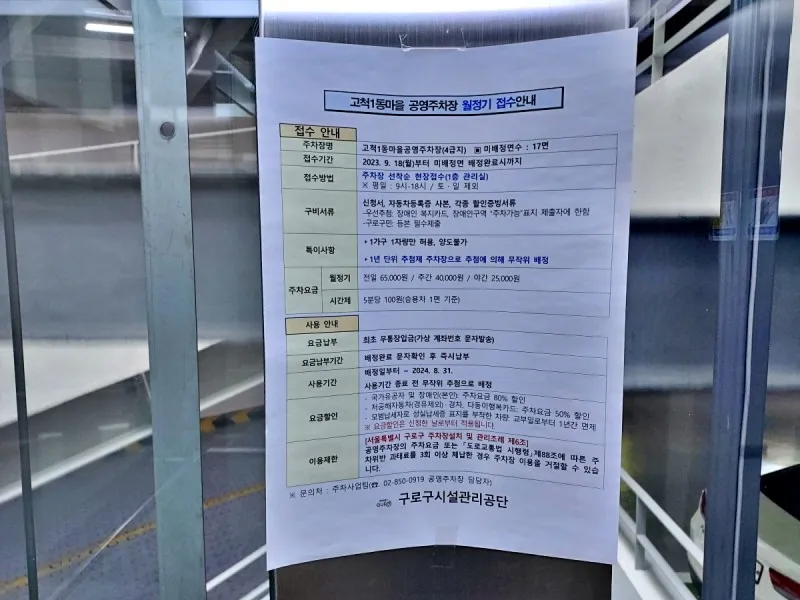 고척1동마을 공영주차장 월정기 접수안내
접수 안내
주차장명 고척1동마을공영주차장(4급지) ▣ 미배정면수 : 17면
접수기간 2023. 9. 18(월)부터 미배정면 배정완료시까지
접수방법 주차장 선착순 현장접수(1층 관리실)
※ 평일 : 9시-18시 / 토·일 제외
구비서류 신청서, 자동차등록증 사본, 각종 할인증빙서류
-우선추첨: 장애인 복지카드, 장애인구역 "주차가능"표지 제출자에 한함
-구로구민: 등본 필수제출
특이사항 +1가구 1차량만 허용, 양도불가
+1년 단위 추첨제 주차장으로 추첨에 의해 무작위 배정
주차요금 월정기 전일 65,000원 / 주간 40,000원 / 야간 25,000원
시간제 5분당 100원(승용차 1면 기준)
사용 안내
요금납부 최초 무통장입금(가상 계좌번호 문자발송)
요금납부기간 배정완료 문자확인 후 즉시납부
사용기간 배정일부터 ~ 2024. 8. 31.
사용기간 종료 전 무작위 추첨으로 배정
요금할인 - 국가유공자 및 장애인(본인): 주차요금 80% 할인
- 저공해자동차(경유제외)· 경차, 다둥이행복카드: 주차요금 50% 할인
- 모범납세자로 성실납세증 표지를 부착한 차량: 교부일로부터 1년간 면제
※ 요금할인은 신청한 날로부터 적용됩니다.
이용제한 [서울특별시 구로구 주차장설치 및 관리조례 제6조]
공영주차장의 주차요금 또는 「도로교통법 시행령」제88조에 따른 주
차위반 과태료를 3회 이상 체납한 경우 주차장 이용을 거절할 수 있습
니다.
※ 문의처 : 주차사업팀(☎ 02-850-0919 공영주차장 담당자)
구로구시설관리공단